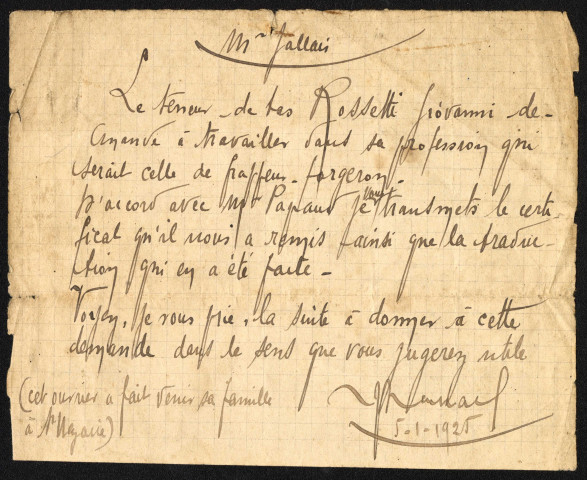 Mr Jallais
Le teneur de tas Rossetti Giovanni de-
mande à travailler dans sa profession qui
serait celle de frappeur-forgeron.
D'accord avec Mr Papaud je vous transmets le certi
ficat qu'il nous a remis ainsi que la traduc-
tion qui en a été faite -
Voyez, je vous prie, la suite à donner à cette
demande dans le sens que vous jugerez utile
(cet ouvrier a fait venir sa famille
à St Nazaire)
5-1-1925